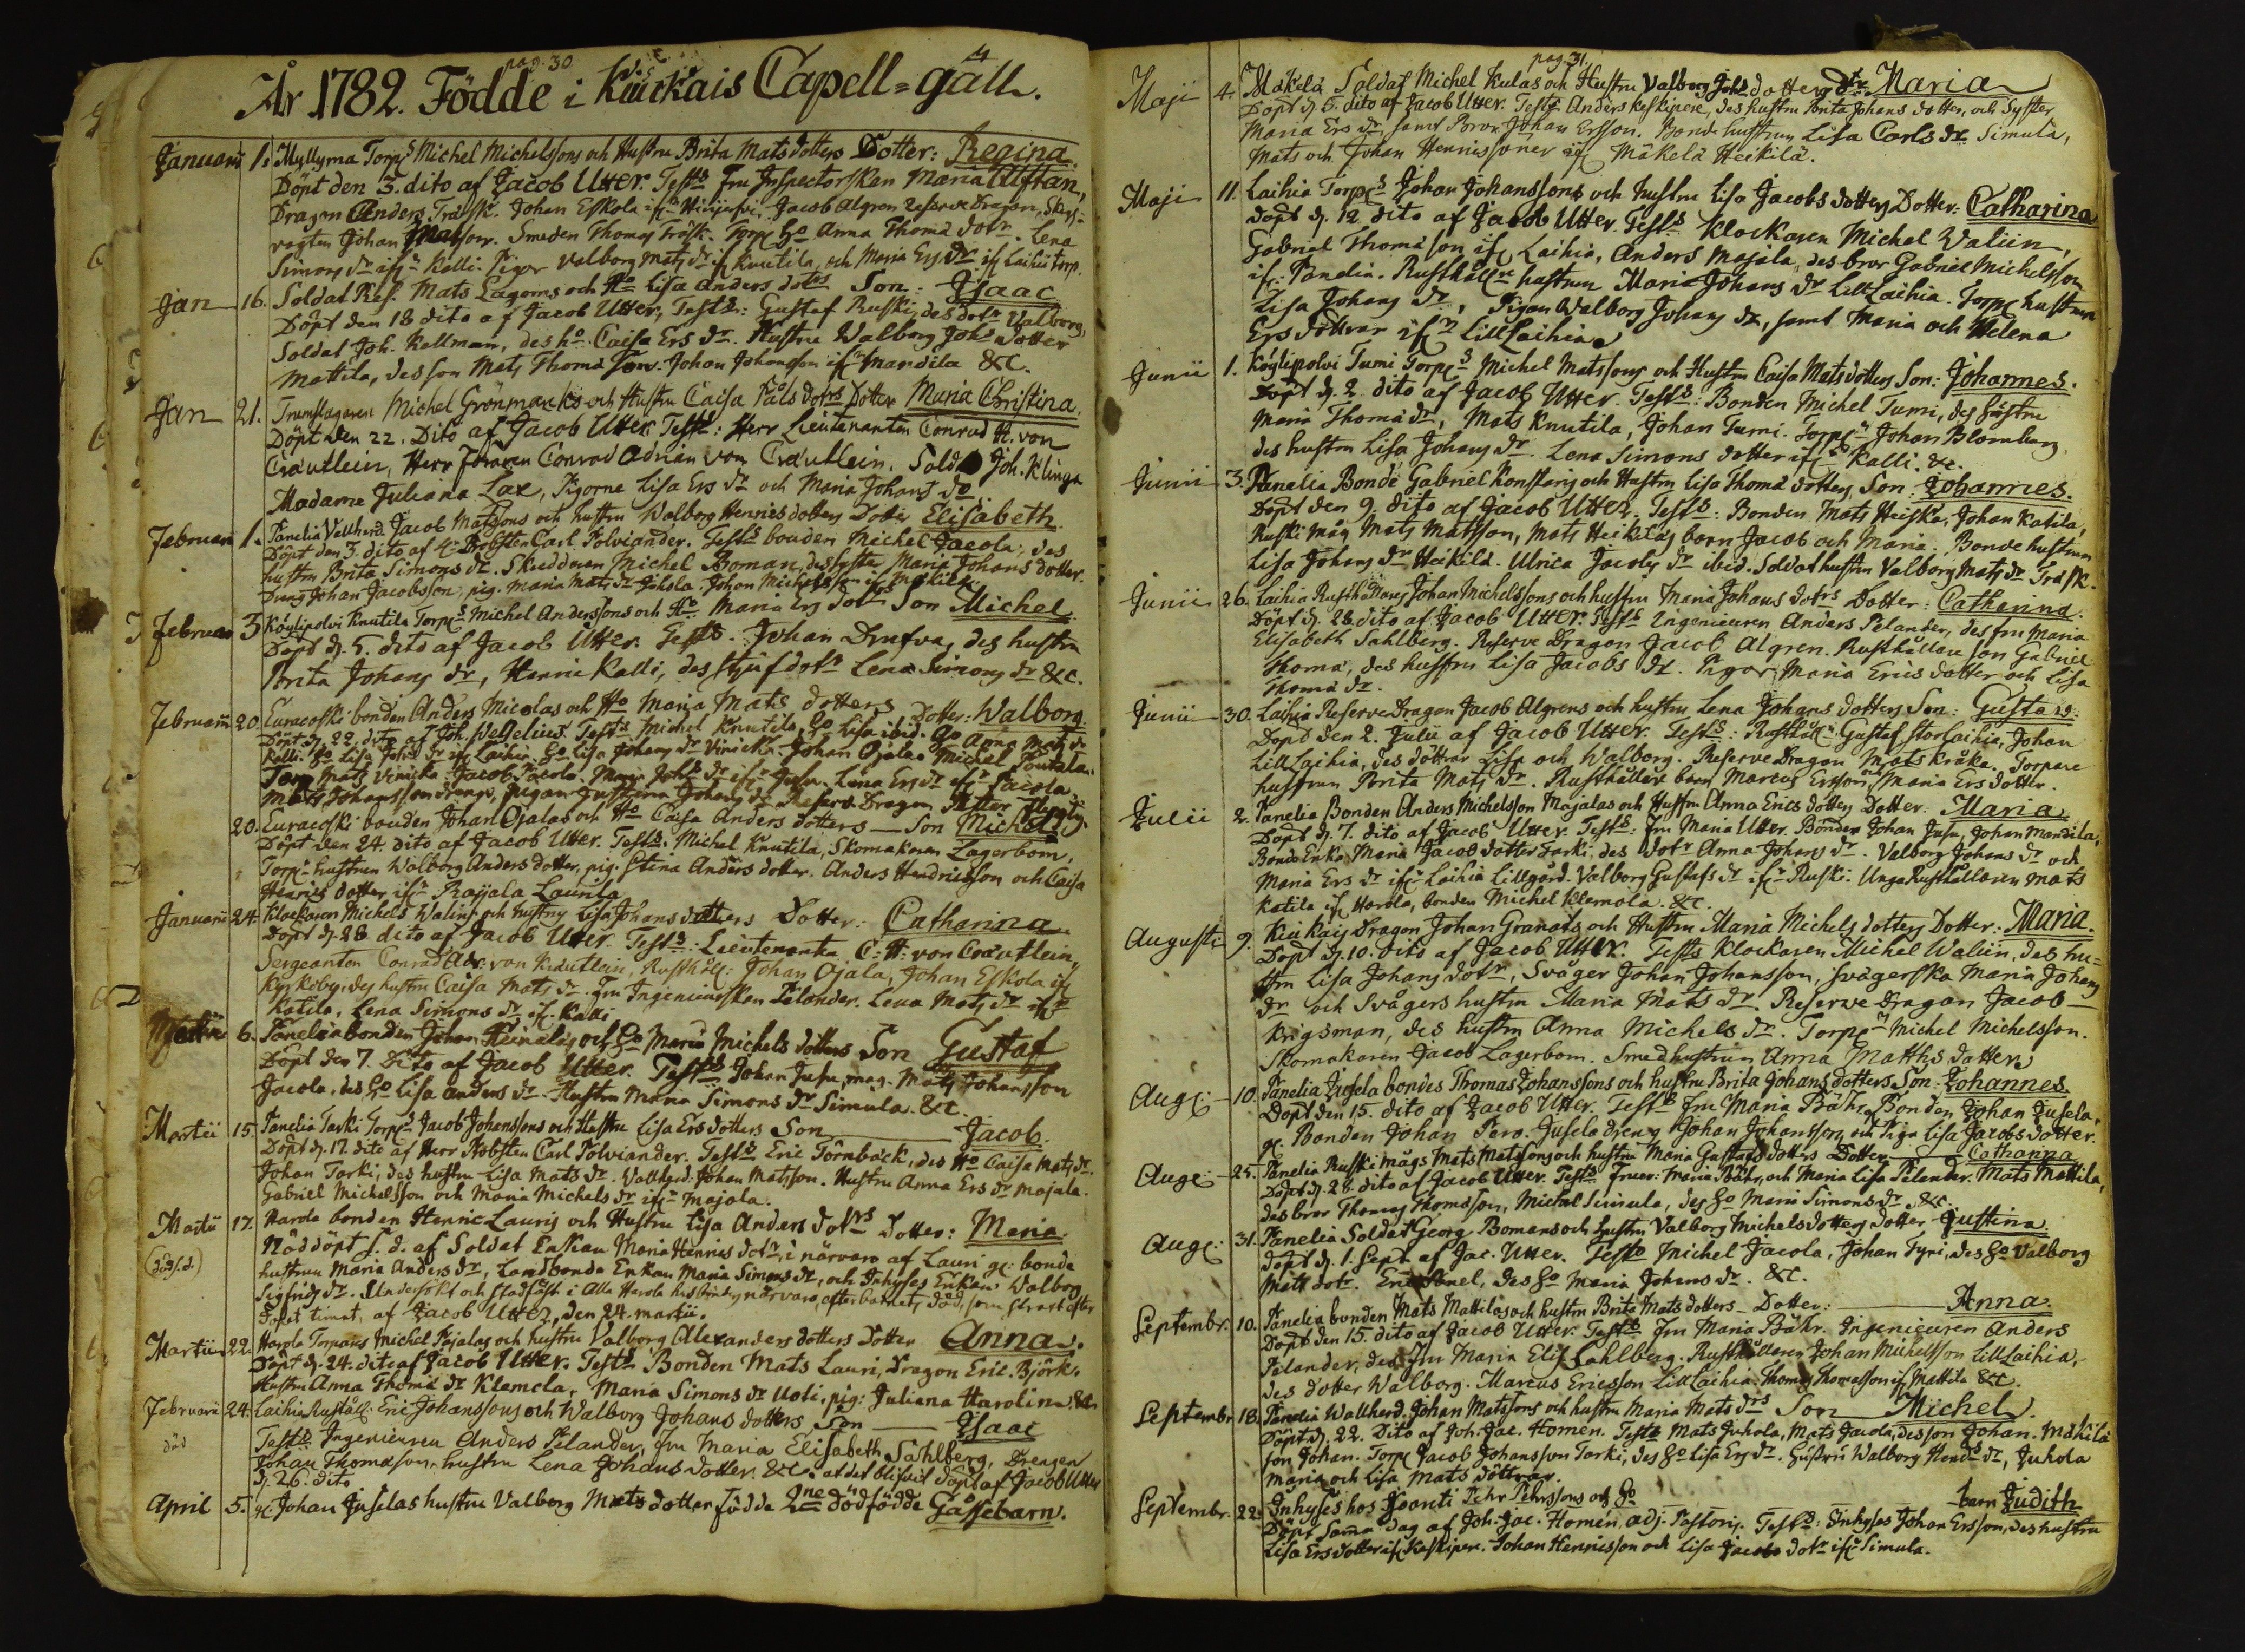 pag. 30
År 1782. Födde i Kiukais Capell=gäll.
Januarii 1. Myllyma Torps Michel Michelssons och Hustru Brita Mats dotters Dotter: Regina.
Döpt den 3. dito af Jacob Utter. Tests Fru Inspectorskan Maria
Dragon Anders Träsk. Johan Eskola Jacob Algren Reserve Dragon,
Johan Matsson. Smeden Thomas Träsk. Torp Ho Anna Thoma Dotr. Lena
Simons dr Kalli. Pigor Valborg Mats dr Knutila, och Maria Ers Dr Laihia torp.
Jan 16. Soldat Ref. Mats Lagoms och Ho Lisa Anders dots Son: Isaac
Döpt den 18 dito af Jacob Utter, Tests: Gustaf Ruski, des dotr Valborg,
Soldat Joh. Kellman, des ho Caisa Ers dr. Hustru Walborg Johs dotter
Mattila, des son Mats Thoma Johan Johansson Mandila &c.
Jan 21. Trumslagaren Michel Grönmarks och Hustru Caisa Påls dotrs Dotter Maria Christina.
Döpt den 22. Dito af Jacob Utter. Tests: Herr Lieutenanten Conrad H. von
Crautlein, Herr Conrad Adrian von Crautlein. Sold Joh. Klinga
Madame Juliana Lax, Pigorne Lisa Ers dr och Maria Johans dr
Februarii 1. Panelia Vallherd Jacob Matssons och hustru Walborg Henrics dotters Dotter Elisabeth.
Döpt den 3. dito af Probsten Carl Polviander. Tests bonden Michel Jacola, des
hustru Brita Simons dr. Skräddaren Michel Boman, des syster Maria Johans dotter.
Dreng Johan Jacobsson, pig. Maria Mats dr Juhola. Johan Michelsson Makila.
Februar 3 Köylipolvi Knutila Torps Michel Anderssons och Ho Maria Ers dotrs Son Michel
Döpt d. 5. dito af Jacob Utter. Tests. Johan Drufva, des hustru
Brita Johans dr, Henric Kalli, des styfdotr Lena Simons dr &c.
Februarii 20 Euracoski bonden Anders Micolas och Ho Maria Mats dotters Dotter: Walborg.
Döpt d. 22. dito af Joh. Wegelius. Tests Michel Knutila, Ho Lisa ibid. Ho Anna Mats dr
Kalli. Ho Lisa Johs dr Laihia. Ho Lisa Johans dr Vinicka. Johan Ojala. Michel Knutila
Mats Vinicka. Jacob Jacola. Maria Johs dr Jusu. Lena Ers dr Jacola.
Mats Johansson dreng. pigan Justina Johans dr Reserv Dragon Petter
20. Euracoski bonden Johan Ojalas och Ho Caisa Anders dotters — Son Michel
Döpt den 24. dito af Jacob Utter. Tests. Michel Knutila, Skomakaren Lagerbom,
Torp hustrun Walborg Anders dotter, pig. Stina Anders dotter. Anders Hendricsson och Caisa
Henrics dotter Raijala Laurila
Januarii 24. Klockaren Michels Walins och hustrus Lisa Johans dotters Dotter: Catharina
Döpt d. 28 dito af Jacob Utter. Tests: Lieutenanten C: H: von Crautlein,
Sergeanten Conrad Adr: von Krautlein, Rusthåll: Johan Ojala, Johan Eskola
Kyrkoby, des hustru Caisa Mats dr. Fru Ingenieurskan Pilander. Lena Mats dr
Katila, Lena Simons dr Kalli
Martii 6. Panelia bonden Johan Heinilas och Ho Maria Michels dotters Son Gustaf
Döpt den 7. Dito af Jacob Utter. Tests Johan Jusu, mag. Mats Johansson
Jacola, des Ho Lisa Anders dr. Hustru Maria Simons dr Simula. &c.
Martii 15. Panelia Tarki Torps Jacob Johanssons och Hustru Lisa Ers dotters Son — Jacob.
Döpt d. 17. dito af Herr Probsten Carl Polviander. Tests Eric Törnback, des Ho Caisa Mats dr.
Johan Tarki, des hustru Lisa Mats dr. Vallherd. Johan Matsson. Hustru Anna Ers dr Majala.
Gabriel Michelsson och Maria Michels dr Majala.
Martii 17. Harola bonden Henric Lauris och Hustru Lisa Anders dotrs Dotter: Maria
Nöddöpt s. d. af Soldat Enkian Maria Henrics dotr, i närvaro af Lauri gl: bonde
hustrun Maria Anders dr, Landbonde Enkan Maria Simons dr, och Inhyses Enkan Walborg
Sigfrids dr. Undersökt och stadfäst i Alla Harola hustrurs närvaro, efter barnets död, som straxt efter
Döpet timat, af Jacob Utter, den 24. martii.
Martii 22. Harola Torpars Michel Pajalas och hustru Valborg Alexanders dotters Dotter Anna.
Döpt d. 24. dito af Jacob Utter. Tests Bonden Mats Lauri, Dragon Eric Björk.
Hustru Anna Thoma dr Klemola, Maria Simons dr Uoti, pig: Juliana Harolin &c
Februarii 24. Laihia Rusthåll: Eric Johanssons och Walborg Johans dotters Son — Isaac
död
Tests Ingenieuren Anders Pilander, Fru Maria Elisabeth Sahlberg, Drengen
Johan Thomasson, hustru Lena Johans dotter. &c. at det blifvit döpt af Jacob Utter
d. 26. dito
April 5. gl. Johan Juselas hustru Valborg Mats dotter födde 2ne dödfödde Gåssebarn.
pag. 31.
Maji 4. Mäkelä Soldat Michel Kulas och Hustru Valborg Johs dotters dr Maria
Döpt d. 5. dito af Jacob Utter. Tests Anders Keskipere, des hustru Brita Johans dotter, och Syster
Maria Ers dr, samt Bror Johan Ersson. Bonde hustrun Lisa Carls dr Simula,
Mats och Johan Henrissöner Mäkelä Heikilä.
Maji 11. Laihia Torps Johan Johanssons och hustru Lisa Jacobs dotters Dotter: Catharina
döpt d. 12 dito af Jacob Utter. Tests Klockaren Michel Waliin,
Gabriel Thomasson Laihia, Anders Majala, des bror Gabriel Michelsson
Panelia. Rusthåll hustrun Maria Johans dr LillLaihia. Torp hustrun
Lisa Johans dr, Pigan Walborg Johans dr, samt Maria och Helena
Ers döttrar LillLaihia
Junii 1. Köylipolvi Tumi Torps Michel Matssons och Hustru Caisa Mats dotters Son: Johannes.
Döpt d. 2. dito af Jacob Utter. Tests: Bonden Michel Tumi, des hustru
Maria Thoma dr, Mats Knutila, Johan Tumi. Torp Johan Blomberg
des hustru Lisa Johans dr. Lena Simons dotter Kalli. &c.
Junii 3. Panelia Bonde Gabriel Konstaris och Hustru Lisa Thoma dotters, Son: Johannes.
Döpt den 9. dito af Jacob Utter. Tests: Bonden Mats Heiska, Johan Katila,
Ruski måg Mats Matsson, Mats Heikilas barn Jacob och Maria. Bonde hustrun
Lisa Johans dr Heikilä. Ulrica Jacobs dr ibid. Soldat hustru Valborg Mats dr Träsk.
Junii 26. Laihia Rusthållares Johan Michelssons och hustru Maria Johans dotrs Dotter: Catharina.
Döpt d. 28. dito af Jacob Utter. Tests Ingenieuren Anders Pelander, des fru Maria
Elisabeth Sahlberg. Reserve Dragon Jacob Algren. Rusthållare son Gabriel
Thoma, des hustru Lisa Jacobs dr. Pigor Maria Erics dotter och Lisa
Thoma dr.
Junii 30. Laihia Reserve Dragon Jacob Algrens och hustru Lena Johans dotters Son: Gustav.
Döpt den 2. Julii af Jacob Utter. Tests: Rusthåll Gustaf StorLaihia, Johan
LillLaihia, des döttrar Lisa och Walborg. Reserve Dragon Mats Kråka. Torpare
hustrun Brita Mats dr. Rusthållare barn Marcus Ersson och Maria Ers dotter.
Julii 2. Panelia Bonden Anders Michelsson Majalas och Hustru Anna Erics dotters Dotter: Maria
Döpt d. 7. dito af Jacob Utter. Tests: Fru Maria Utter. Bonden Johan Jusu, Johan Mandila,
Bonde Enka Maria Jacobs dotter Tarki, des dotr Anna Johans dr. Valborg Johans dr och
Maria Ers dr Laihia Lillgård. Valborg Gustafs dr Ruski. Unga Rusthållaren Mats
Katila Harola, bonden Michel Klemola. &c.
Augusti 9. Kiukais Dragon Johan Granats och Hustru Maria Michels dotters Dotter: Maria.
Döpt d. 10. dito af Jacob Utter. Tests Klockaren Michel Waliin, des hu=
stru Lisa Johans dotr, Svåger Johan Johansson, Svägerska Maria Johans
dr och Svågers hustru Maria Mats dr. Reserve Dragon Jacob
Krigsman, des hustru Anna Michels dr. Torp Michel Michelsson.
Skomakaren Jacob Lagerbom. Smed hustrun Anna Matths dotter
Aug: 10. Panelia Jusela bondes Thomas Johanssons och hustru Brita Johans dotters Son: Johannes.
Döpt den 15. dito af Jacob Utter. Tests Fru Maria Bähr, Bonden Johan Jusela,
gl. Bonden Johan Pero. Jusela dreng Johan Johansson, och Piga Lisa Jacobs dotter.
Aug: 25. Panelia Ruski mågs Mats Matssons och hustru Maria Gustafs dotters Dotter — Catharina
Döpt d. 28. dito af Jacob Utter. Tests Fruer: Maria Bähr, och Maria Lisa Pilander. Mats Mattila,
des bror Thomas Thomasson, Michel Simula, des Ho Maria Simons dr. &c.
Aug: 31. Panelia Soldat Georg Bomans och hustru Valborg Michels dotters dotter Justina.
Döpt d. 1. Sept. af Jac. Utter. Tests Michel Jacola, Johan Tyri, des Ho Valborg
Matts dotr. Eric Panel, des Ho Maria Johans dr. &c.
Septembr. 10. Panelia bonden Mats Mattilas och hustru Brita Mats dotters — Dotter: Anna.
Döpt den 15. dito af Jacob Utter. Tests Fru Maria Bähr. Ingenieuren Anders
Pelander, des fru Maria Elis Sahlberg. Rusthållaren Johan Michelsson LillLaihia,
des dotter Walborg. Marcus Ericsson LillLaihia. Thomas Thomasson Mattila &c.
Septembr 18. Panelia Wallherd. Johan Matssons och hustru Maria Mats drs Son Michel.
Döpt d. 22. Dito af Joh. Jac. Homén. Tests Mats Juhola, Mats Jacola, des son Johan. Mäkilä
son Johan. Torp Jacob Johansson Tarki, des Ho Lisa Ers dr. Hustru Walborg Hend dr, Juhola
Maria och Lisa Mats döttrar.
Septembr. 22. Inhyses hos Jvanti Pehr Pehrssons och Ho — barn Judith
Döpt Samma dag af Joh. Jac. Homén, adj. Pastoris. Tests: Inhyses Johan Ersson, des hustru
Lisa Ers dotter Keskipere. Johan Henricsson och Lisa Jacobs dotr Simula.